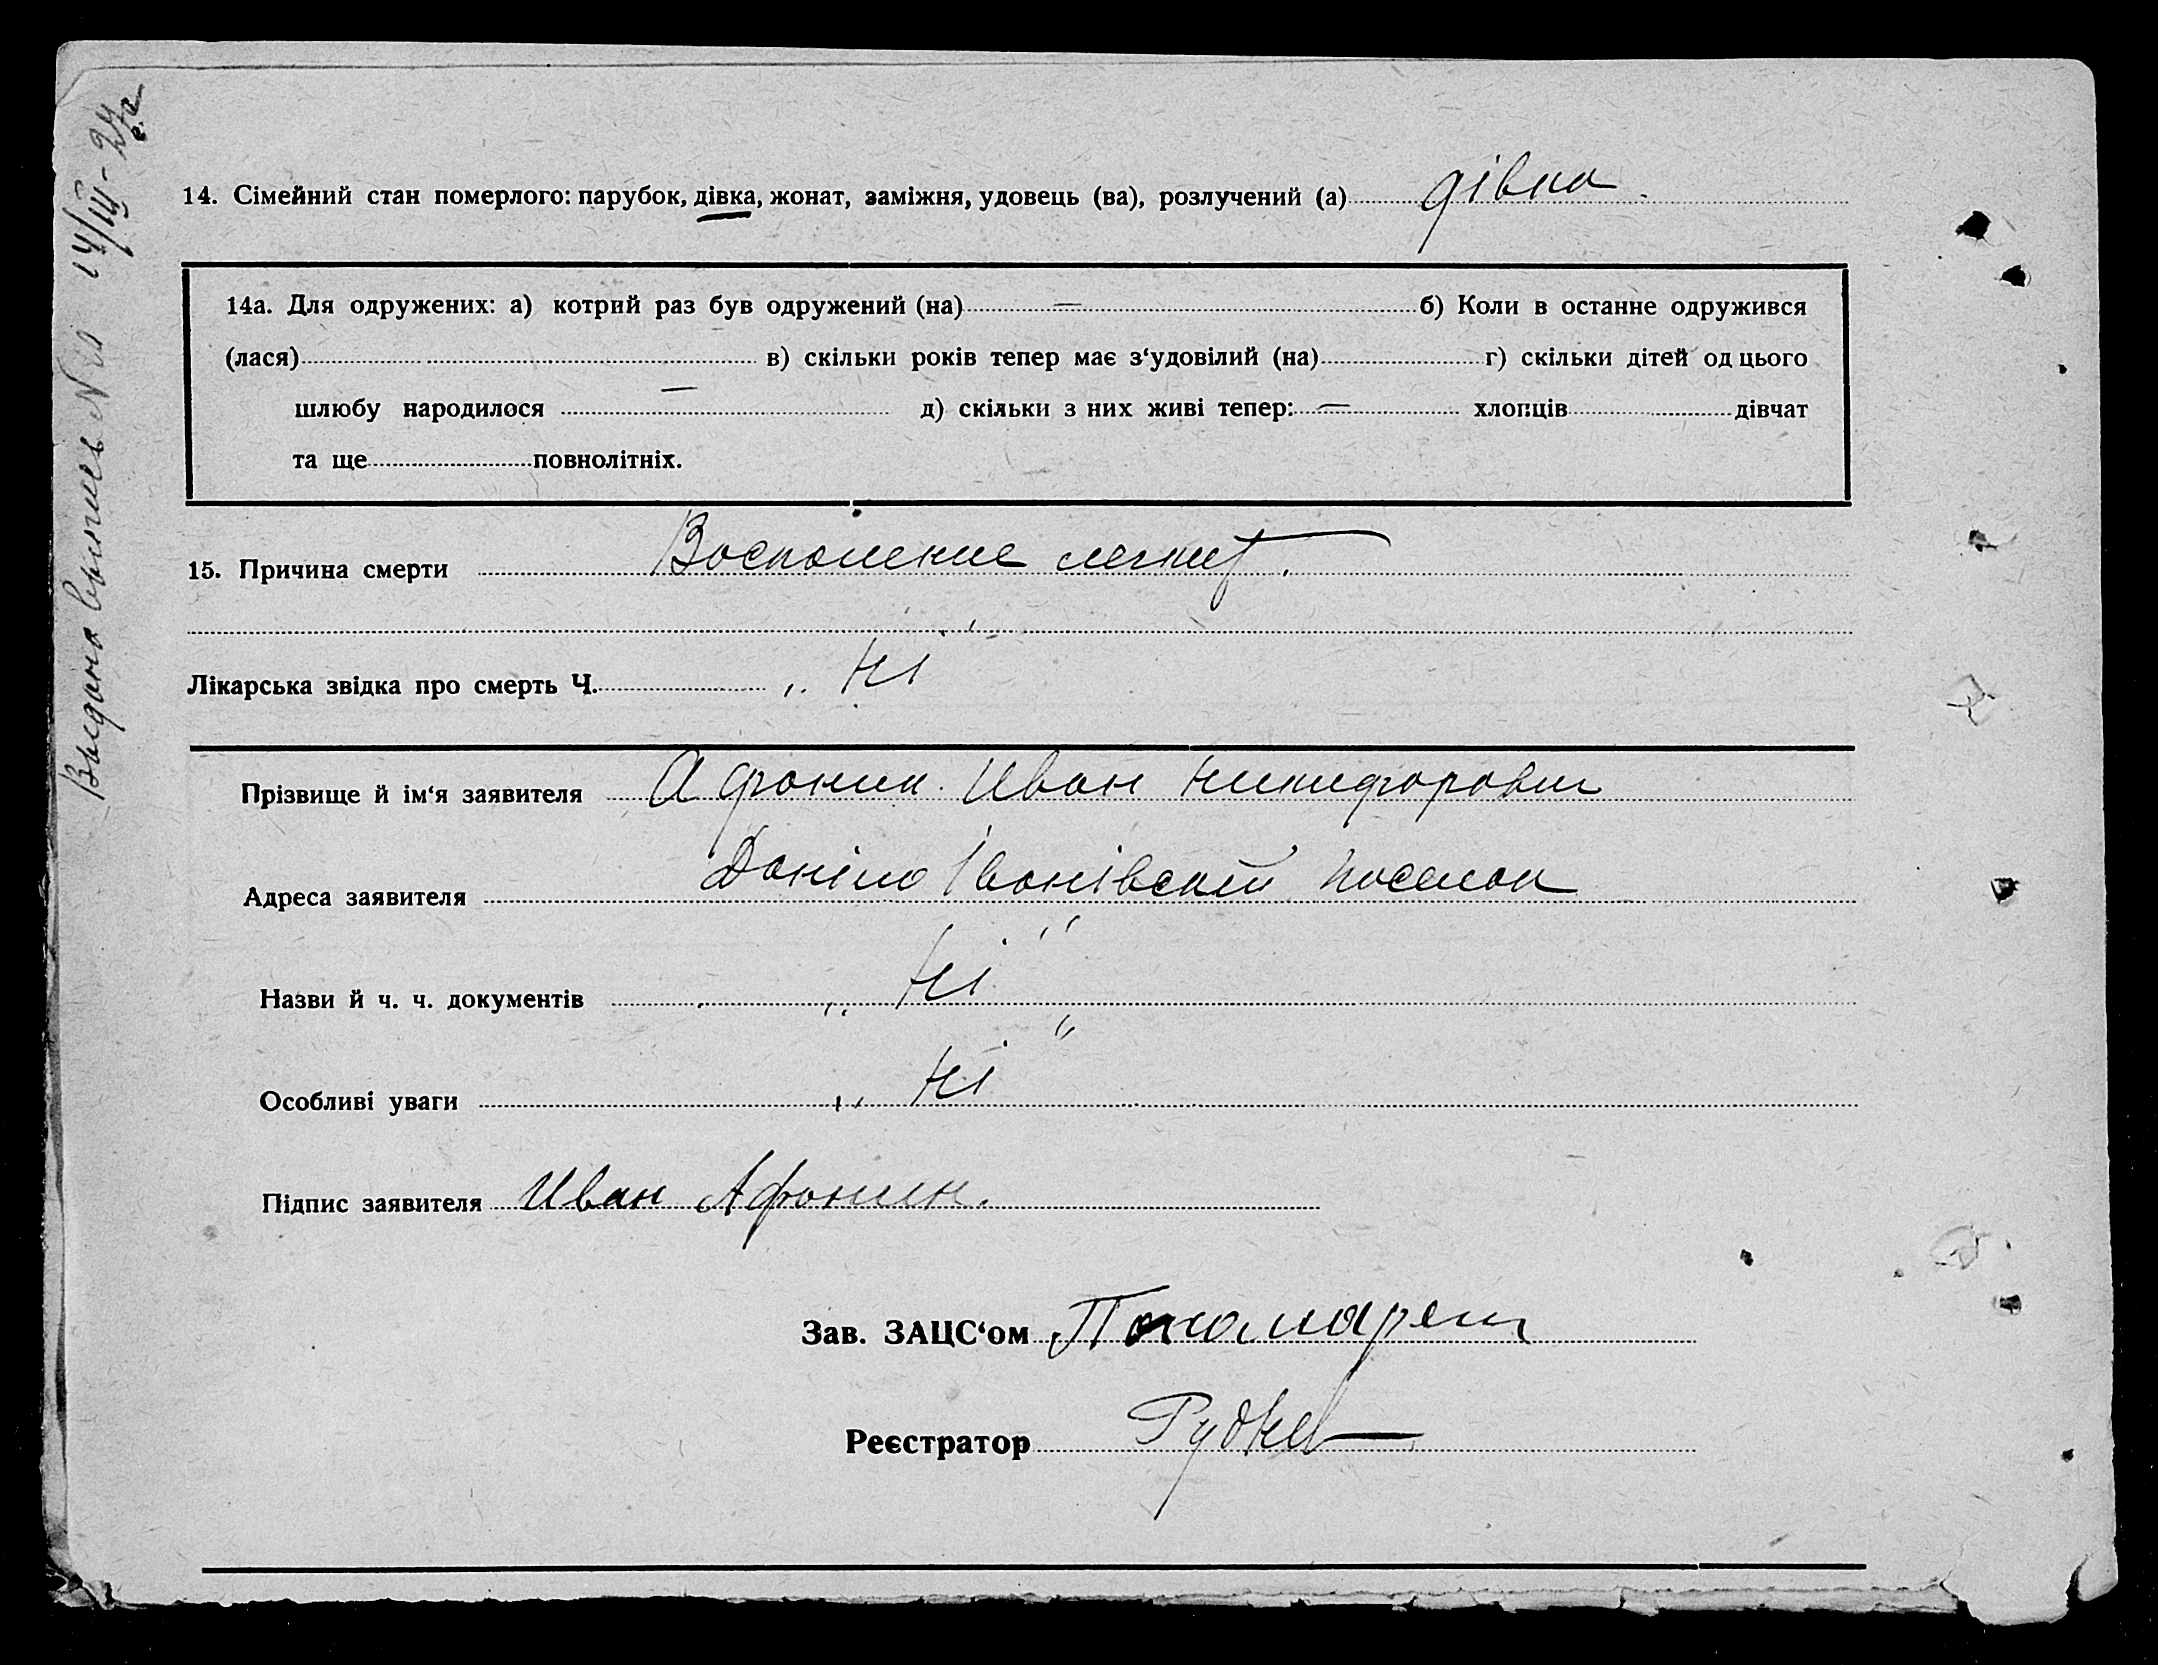 Выдана выпись № 14/III-27 г.
14. Сімейний стан померлого: парубок, дівка, жонат, заміжня, удовець (ва), розлучений (а) дівка
14а. Для одружених: а) котрий раз був одружений (на) — б) Коли в останне одружився
(лася) в) скільки років тепер має з‘удовілий (на) г) скільки дітей од цього
шлюбу народилося — д) скільки з них живі тепер: — хлопців дівчат
та ще повнолітніх.
15. Причина смерти Воспаление легких.
Лікарська звідка про смерть Ч. „Ні"
Прізвище й ім‘я заявителя Афонин Иван Никифорович
Адреса заявителя Даніло Іванівский поселок
Назви й ч. ч. документів „Ні"
Особливі уваги „Ні"
Підпис заявителя Иван Афонин.
Зав. ЗАЦС‘ом
Реєстратор